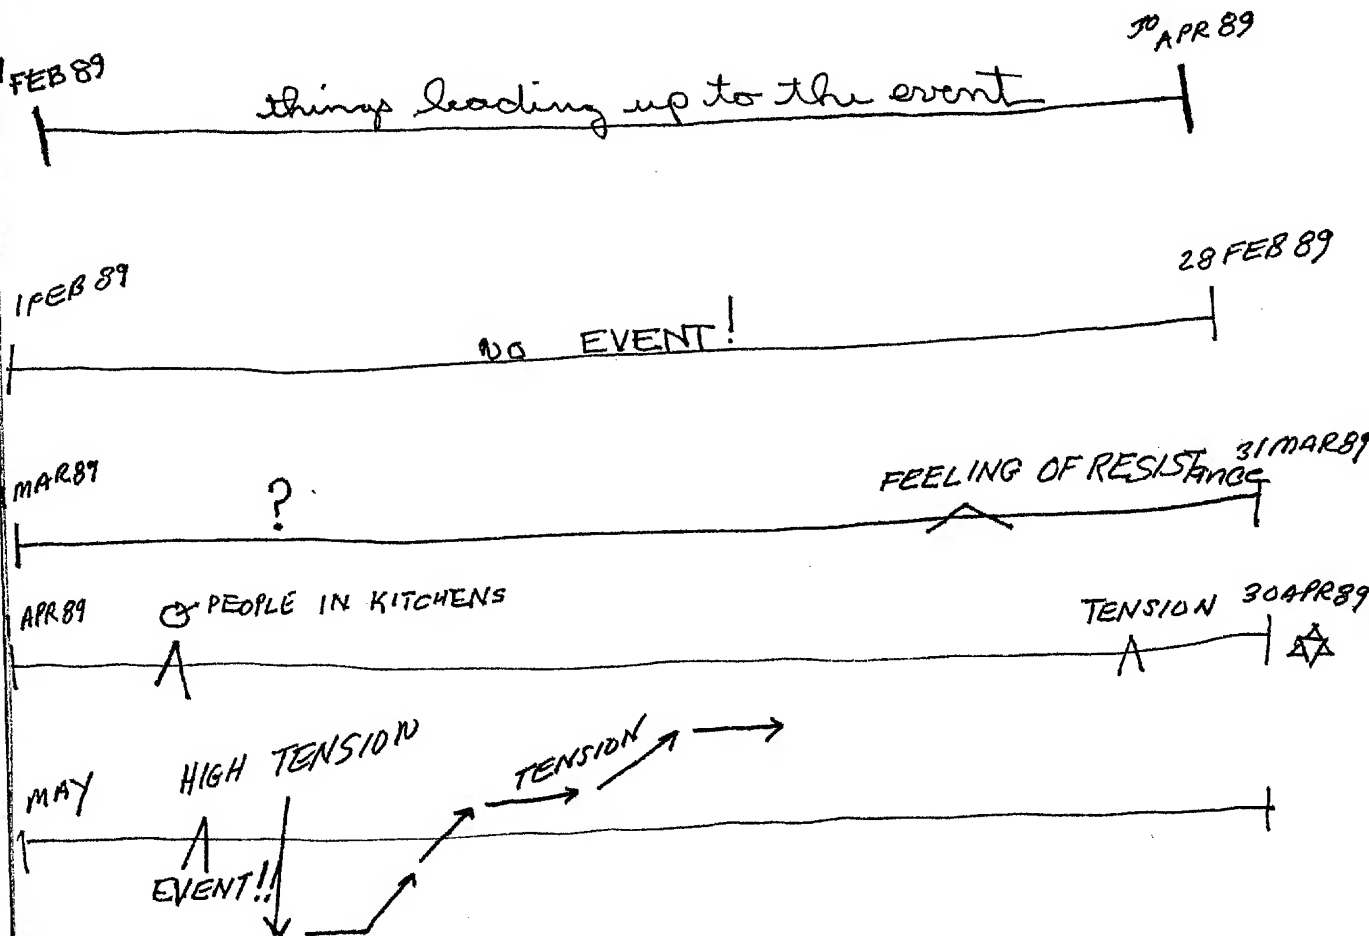 1 FEB 89
30 APR 89
things leading up to the event
1 FEB 89
28 FEB 89
NO EVENT!
MAR 89
?
FEELING OF RESISTance
31 MAR 89
APR 89
PEOPLE IN KITCHENS
TENSION
30 APR 89
MAY
HIGH TENSION
TENSION
EVENT!!